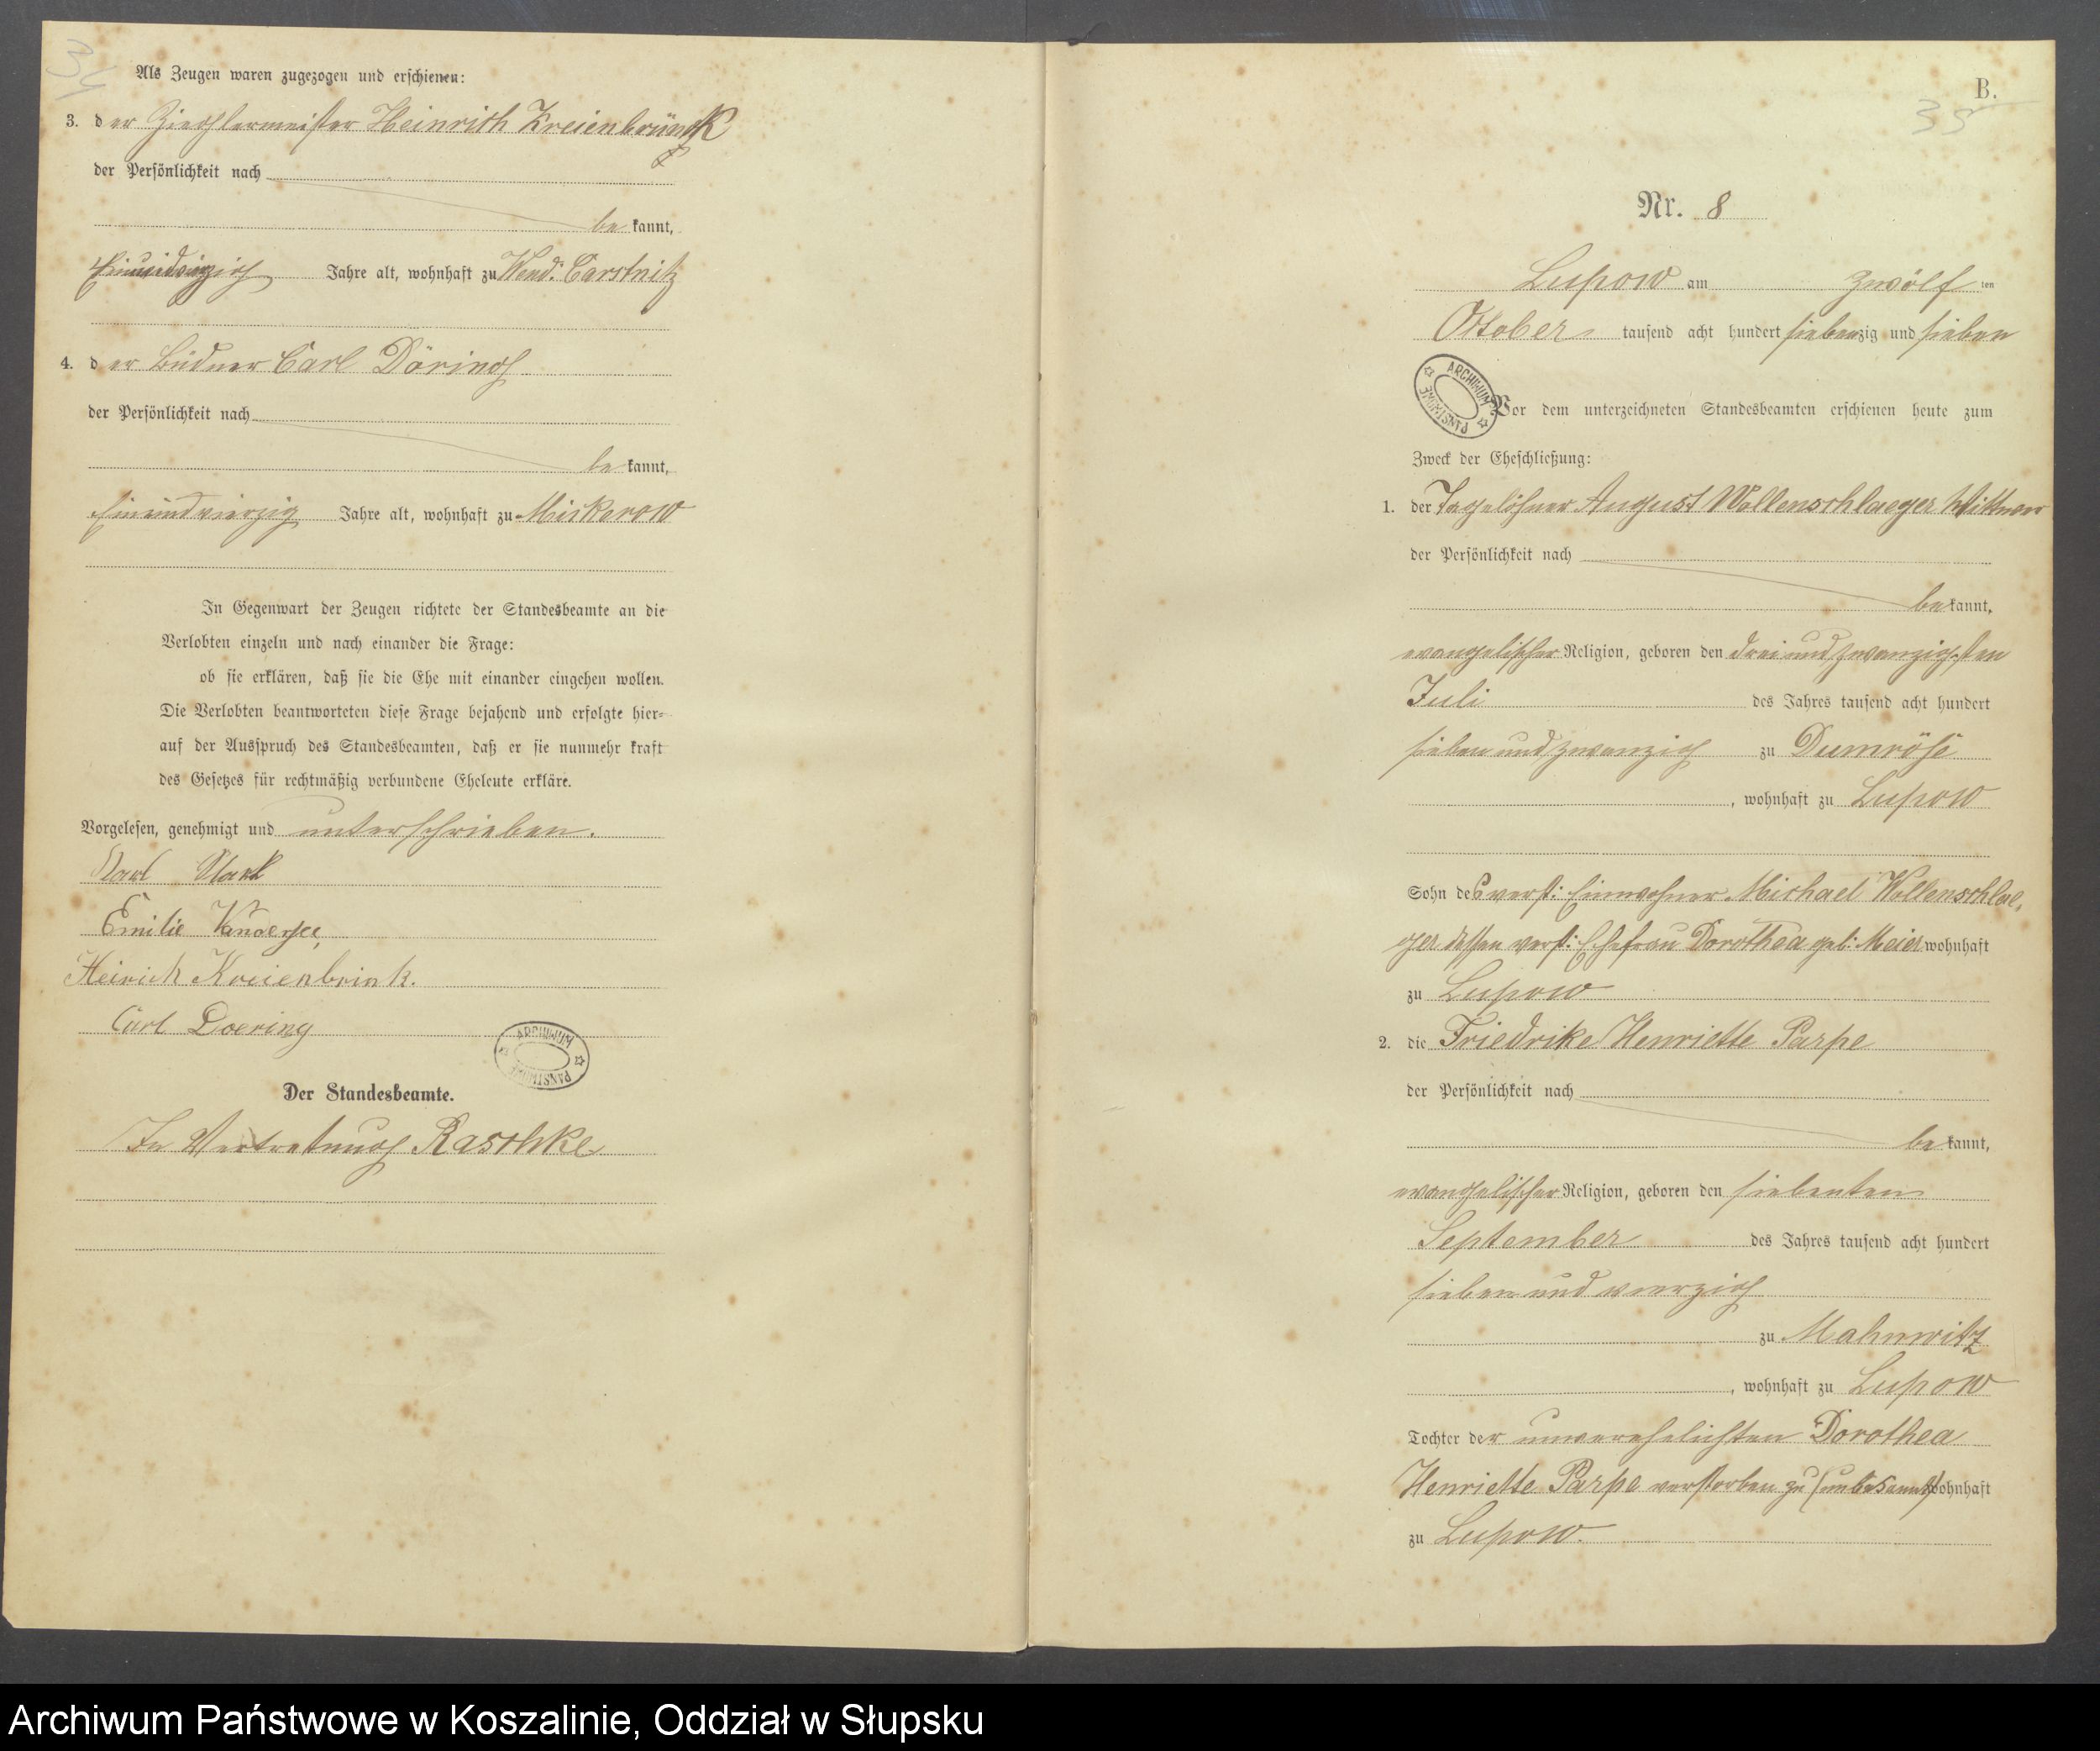 34
Als Zeugen waren zugezogen und erschienen:
3. der Zieglermeister Heinrich Kreienbrünck
der Persönlichkeit nach
bekannt,
Jahre alt, wohnhaft zu Wend: Carstnitz
4. der Büdner Carl Döring
der Persönlichkeit nach
bekannt,
einundvierzig Jahre alt, wohnhaft zu Mickerow
In Gegenwart der Zeugen richtete der Standesbeamte an die
Verlobten einzeln und nach einander die Frage:
ob sie erklären, daß sie die Ehe mit einander eingehen wollen.
Die Verlobten beantworteten diese Frage bejahend und erfolgte hier-
auf der Ausspruch des Standesbeamten, daß er sie nunmehr kraft
des Gesetzes für rechtmäßig verbundene Eheleute erkläre.
Vorgelesen, genehmigt und unterschrieben.
Karl
Emilie Vandersee
Heinrich Kreienbrink.
Carl Doering
ARCHIWUM PAŃSTWOWE
Der Standesbeamte.
In Vertretung Raschke
B.
35
Nr. 8
Lupow am zwölften
October tausend acht hundert siebenzig und sieben
ARCHIWUM PAŃSTWOWE
Vor dem unterzeichneten Standesbeamten erschienen heute zum
Zweck der Eheschließung:
1. der Tagelöhner August Wollenschlaeger Wittwer
der Persönlichkeit nach
bekannt,
evangelischer Religion, geboren den drei und zwanzigsten
Juli des Jahres tausend acht hundert
sieben und zwanzig zu Dumröse
, wohnhaft zu Lupow
Sohn des verst: Einwohner Michael Wollenschlae-
ger dessen verst: Ehefrau Dorothea geb: Meier wohnhaft
zu Lupow
2. die Friedrike Henriette Parpe
der Persönlichkeit nach
bekannt,
evangelischer Religion, geboren den siebenten
September des Jahres tausend acht hundert
sieben und vierzig
zu Mahnwitz
, wohnhaft zu Lupow
Tochter der unverehelichten Dorothea
Henriette Parpe verstorben zu (unbekannt) wohnhaft
zu Lupow.
Archiwum Państwowe w Koszalinie, Oddział w Słupsku